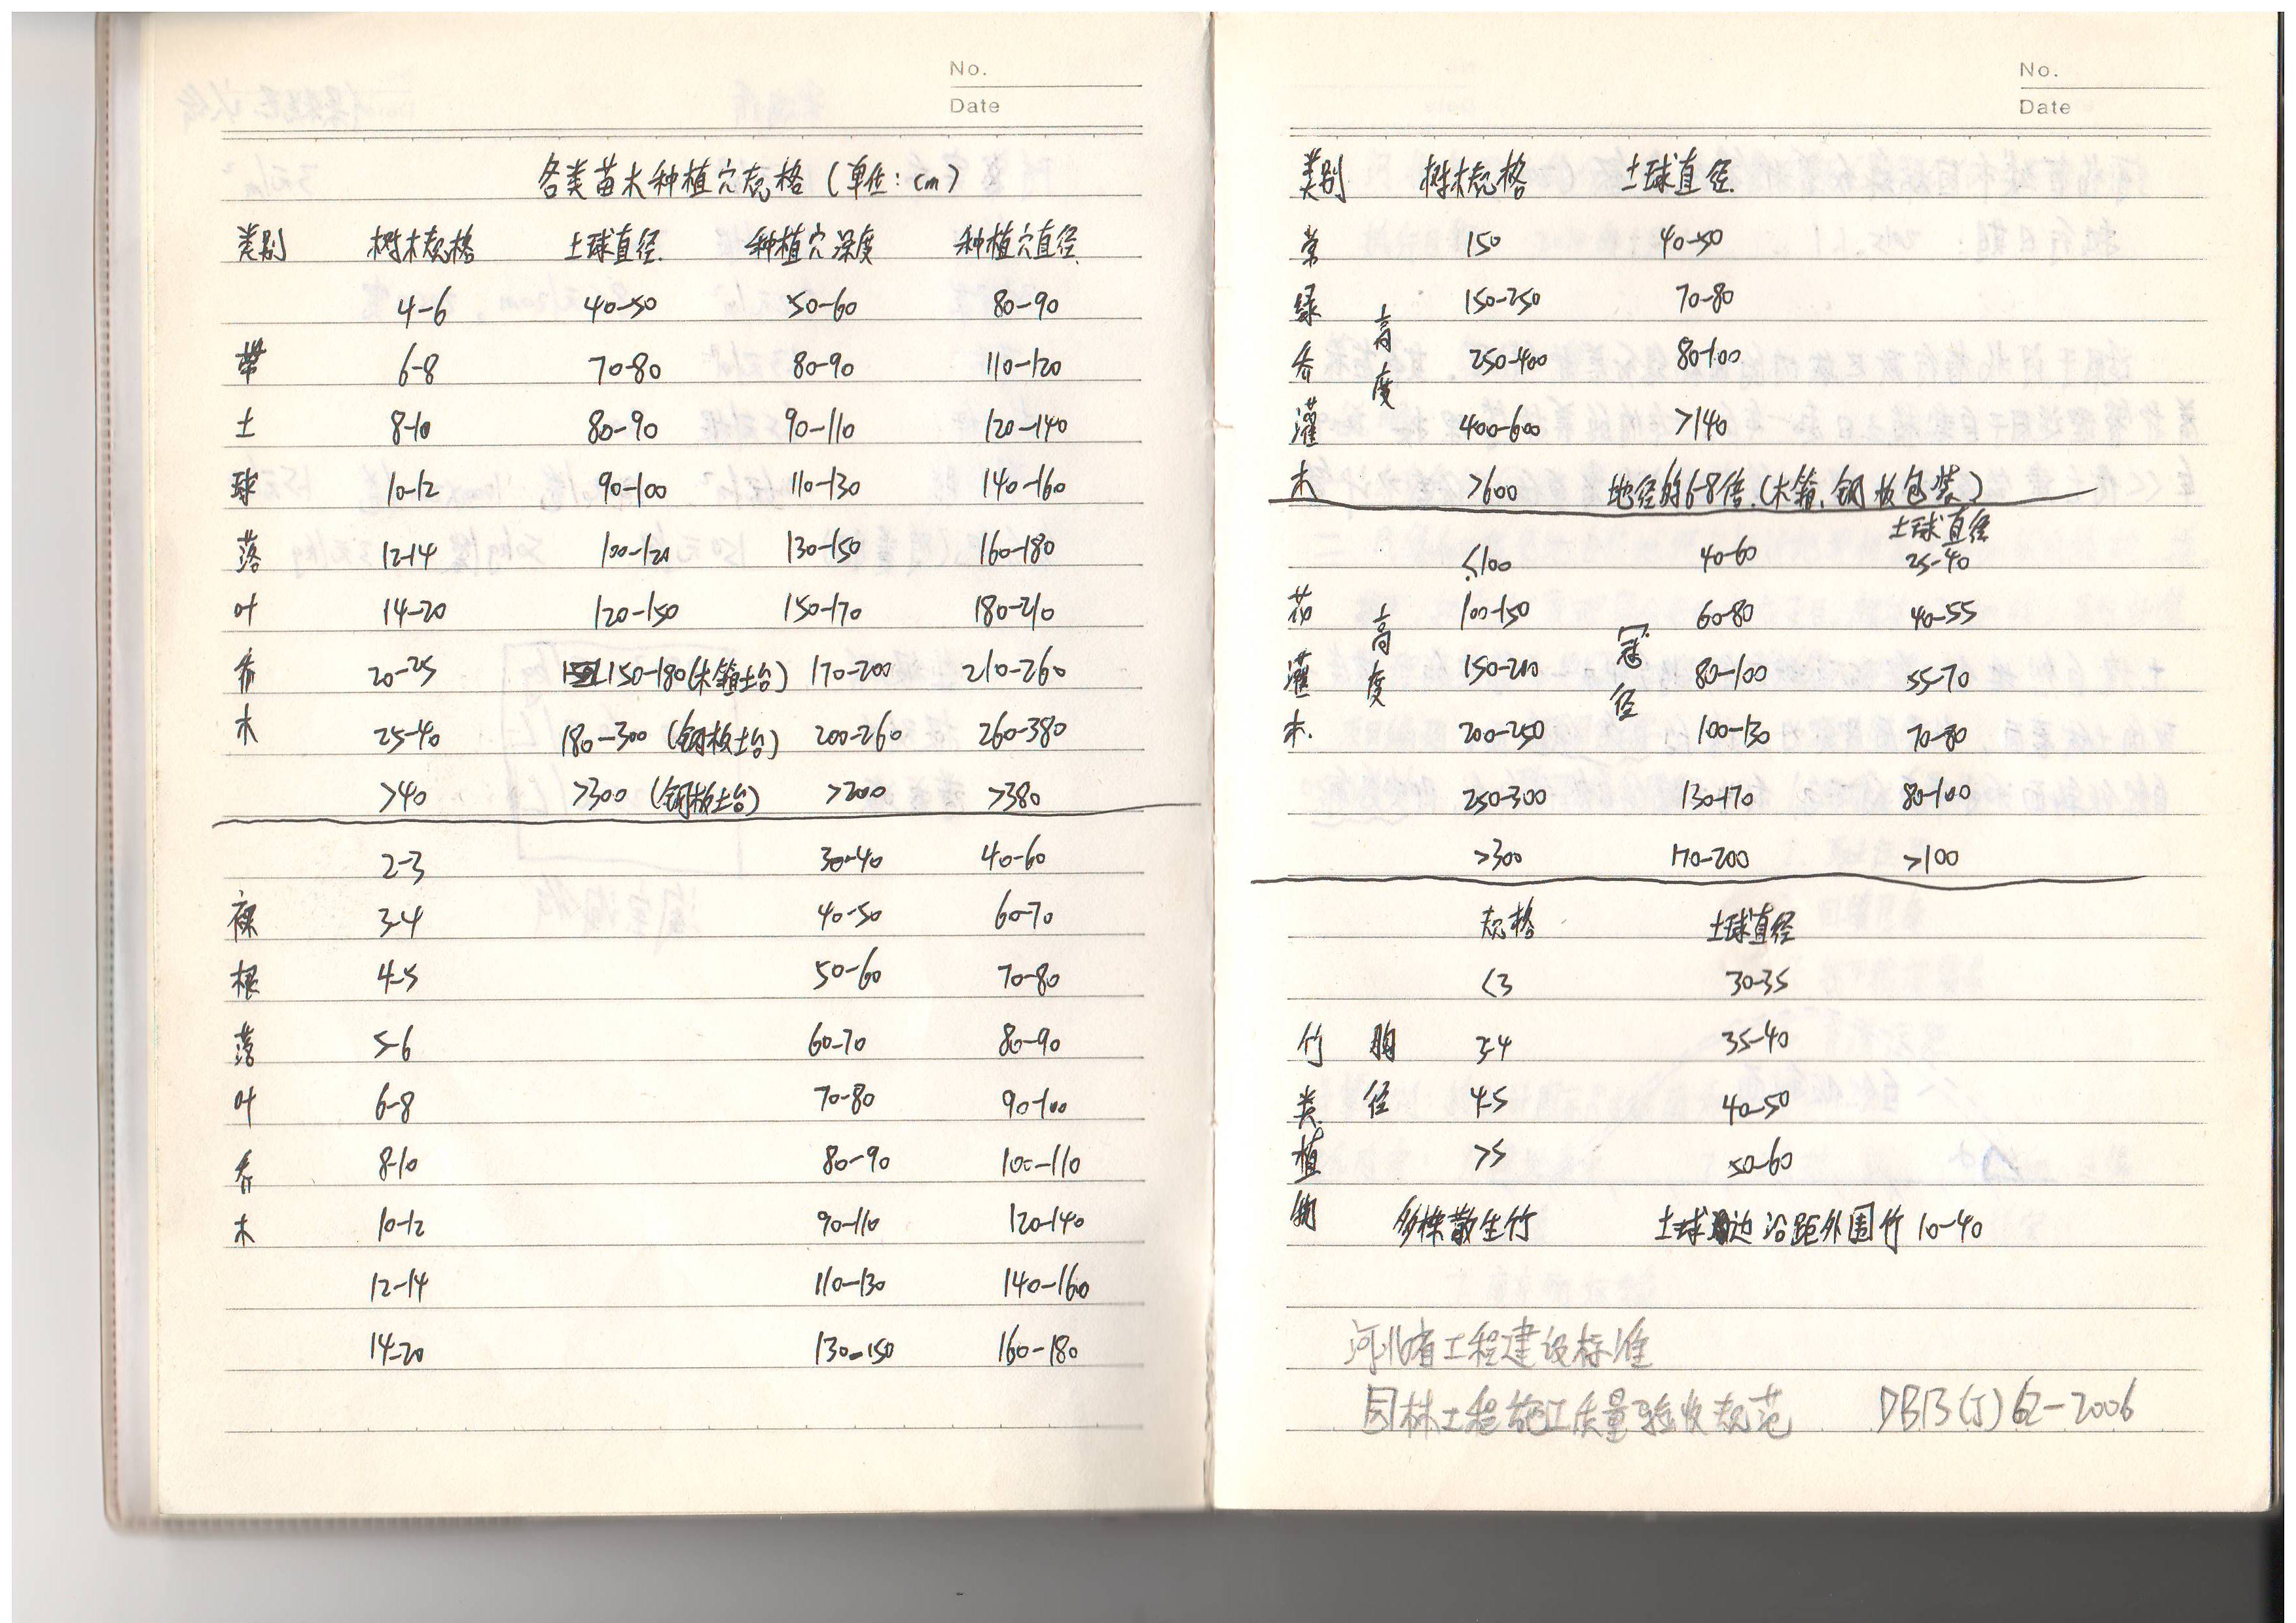 No.
Date
各类苗木种植穴规格(单位:cm)
类别 树木规格 土球直径 种植穴深度 种植穴直径
4-6 40-50 50-60 80-90
带 6-8 70-80 80-90 110-120
土 8-10 80-90 90-110 120-140
球 10-12 90-100 110-130 140-160
落 12-14 100-120 130-150 160-180
叶 14-20 120-150 150-170 180-210
乔 20-25 150-180(木箱土台) 170-200 210-260
木 25-40 180-300(钢板土台) 200-260 260-380
>40 >300(钢板土台) >200 >380
2-3 30-40 40-60
裸 3-4 40-50 60-70
根 4-5 50-60 70-80
落 5-6 60-70 80-90
叶 6-8 70-80 90-100
乔 8-10 80-90 100-110
木 10-12 90-110 120-140
12-14 110-130 140-160
14-20 130-150 160-180
No.
Date
类别 树木规格 土球直径
常 150 40-50
绿 高 150-250 70-80
乔 度 250-400 80-100
灌 400-600 >140
木 >600 地径的6-8倍.(木箱、钢板包装)
土球直径
≤100 40-60 25-40
花 高 100-150 60-80 40-55
灌 度 150-200 冠 80-100 55-70
木. 200-250 径 100-130 70-80
250-300 130-170 80-100
>300 170-200 >100
规格 土球直径
<3 30-35
竹 胸 3-4 35-40
类 径 4-5 40-50
植 >5 50-60
物 多株散生竹 土球边沿距外围竹10-40
河北省工程建设标准
园林工程施工质量验收规范 DB13(J)62-2006